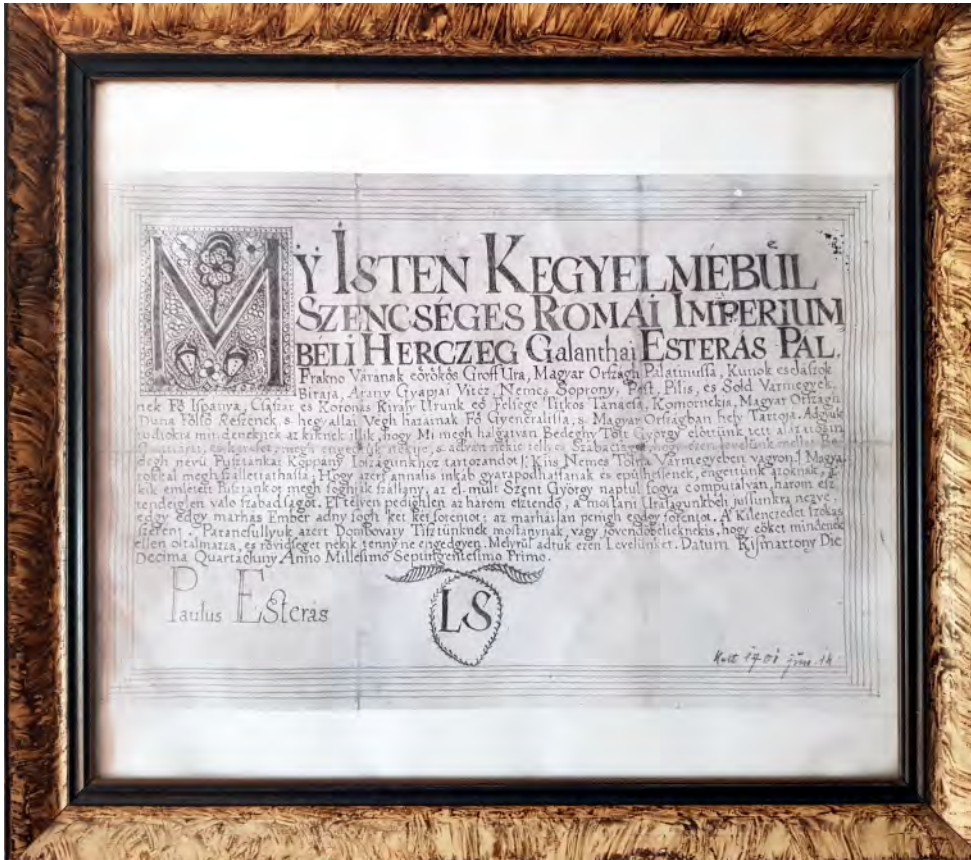 MŸ ISTEN KEGYELMÉBÚL
SZENCSÉGES ROMAI IMPERIUM
BÉLI HERCZEG Galanthai ESTERÁS PÁL.
Frakno Várának eörökös Groff Ura, Magyar Orszagh Palatinussa, Kunok es Jászok
Biraja, Arany Gyapjas Vitéz, Nemes Soprony, Pest, Pilis, es Sold Varmegyék
nek Fő Ispánya, Császár és Koronás Király Urunk eő Felsége Titkos Tanácsa, Komornekis, Magyar Országh
Duna Fölső Reszének, s hegyallai Vegh házainak Fő Gyenerálissa, s Magyar Országban hely Tartoja. Adgyuk
tudtokra mindeneknek az kiknek illik, hogy Mi megh halgatván Bedeghy Tótt György előttünk tett alázatos
degh nevü Pusztánkat Koppány Joszágunkhoz tartozandot s Kiis Nemes Tolna Vármegyében vagyon Magya
rokkal megh szállettathassa; Hogy azért annális inkáb gyarapodhassanak és épülhessenek, engettünk azoknak, a
kik emletett Pusztánkot megh fogják szállany, az el-mult Szent György naptul fogva computalván, három esz
tendeiglen való szabadságot. El telvén pedighlen az három esztendő, a mostani Uraságunkbéli jussunkra nézve,
egdy egdy marhás Ember adny fogh két két forentot; az marhátlan penigh egdgy forentot, A' Kilenczedet szokas
szerént. Parancsullyuk azért Dombovary Tisztünknek mostanynak, vagy jövendőbelieknekis, hogy eőket mindenek
ellen oltalmazza, és rövidséget nekik tenny ne engedgyen. Melyrül adtuk ezen Levelünket. Datum Kismartony Die
Decima Quarta Juny Anno Millesimo Septingentesimo Primo.
Paulus Esterás
LS
Kelt 1701 jún. 14.